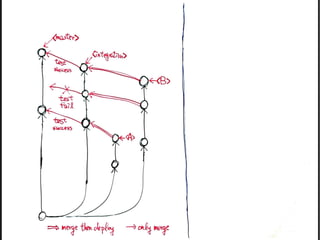 <master>
<integration>
test
success
<B>
test
fail
test
success
<A>
⇒ merge then deploy → only merge